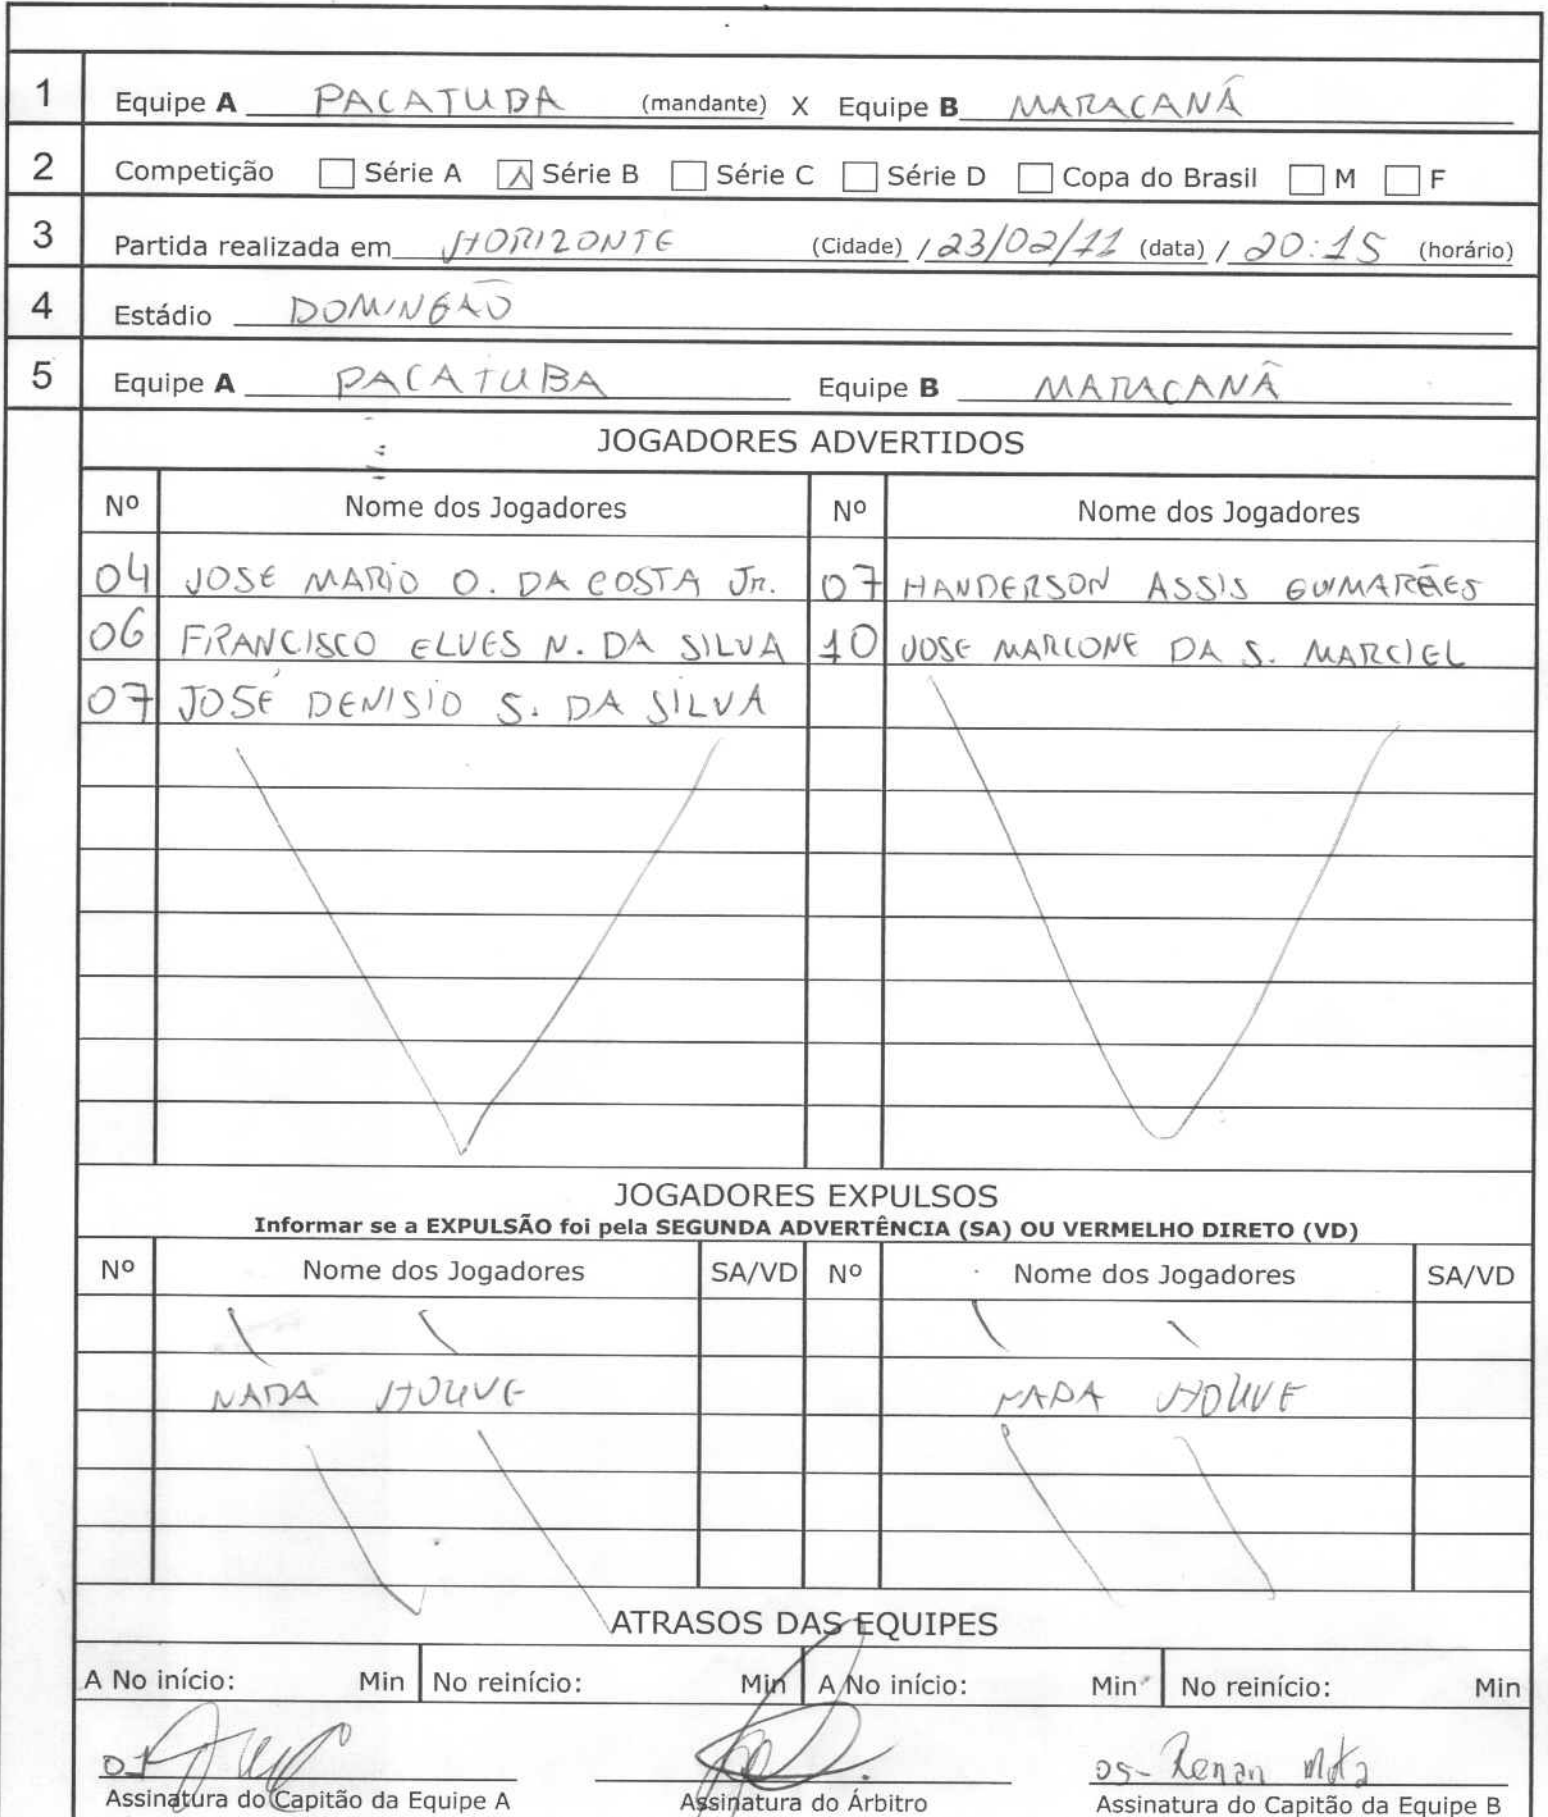 1 Equipe A PACATUBA (mandante) X Equipe B MARACANÃ
2 Competição Série A Série B Série C Série D Copa do Brasil M F
3 Partida realizada em HORIZONTE (Cidade) / 23/02/11 (data) / 20:15 (horário)
4 Estádio DOMINGÃO
5 Equipe A PACATUBA Equipe B MARACANÃ
JOGADORES ADVERTIDOS
Nº Nome dos Jogadores Nº Nome dos Jogadores
04 JOSE MARIO O. DA COSTA Jr. 07 HANDERSON ASSIS GUIMARÃES
06 FRANCISCO ELVES N. DA SILVA 10 JOSE MARCONE DA S. MARCIEL
07 JOSÉ DENISIO S. DA SILVA
JOGADORES EXPULSOS
Informar se a EXPULSÃO foi pela SEGUNDA ADVERTÊNCIA (SA) OU VERMELHO DIRETO (VD)
Nº Nome dos Jogadores SA/VD Nº Nome dos Jogadores SA/VD
NADA HOUVE NADA HOUVE
ATRASOS DAS EQUIPES
A No início: Min No reinício: Min A No início: Min No reinício: Min
01 05- Renan Mota
Assinatura do Capitão da Equipe A Assinatura do Árbitro Assinatura do Capitão da Equipe B